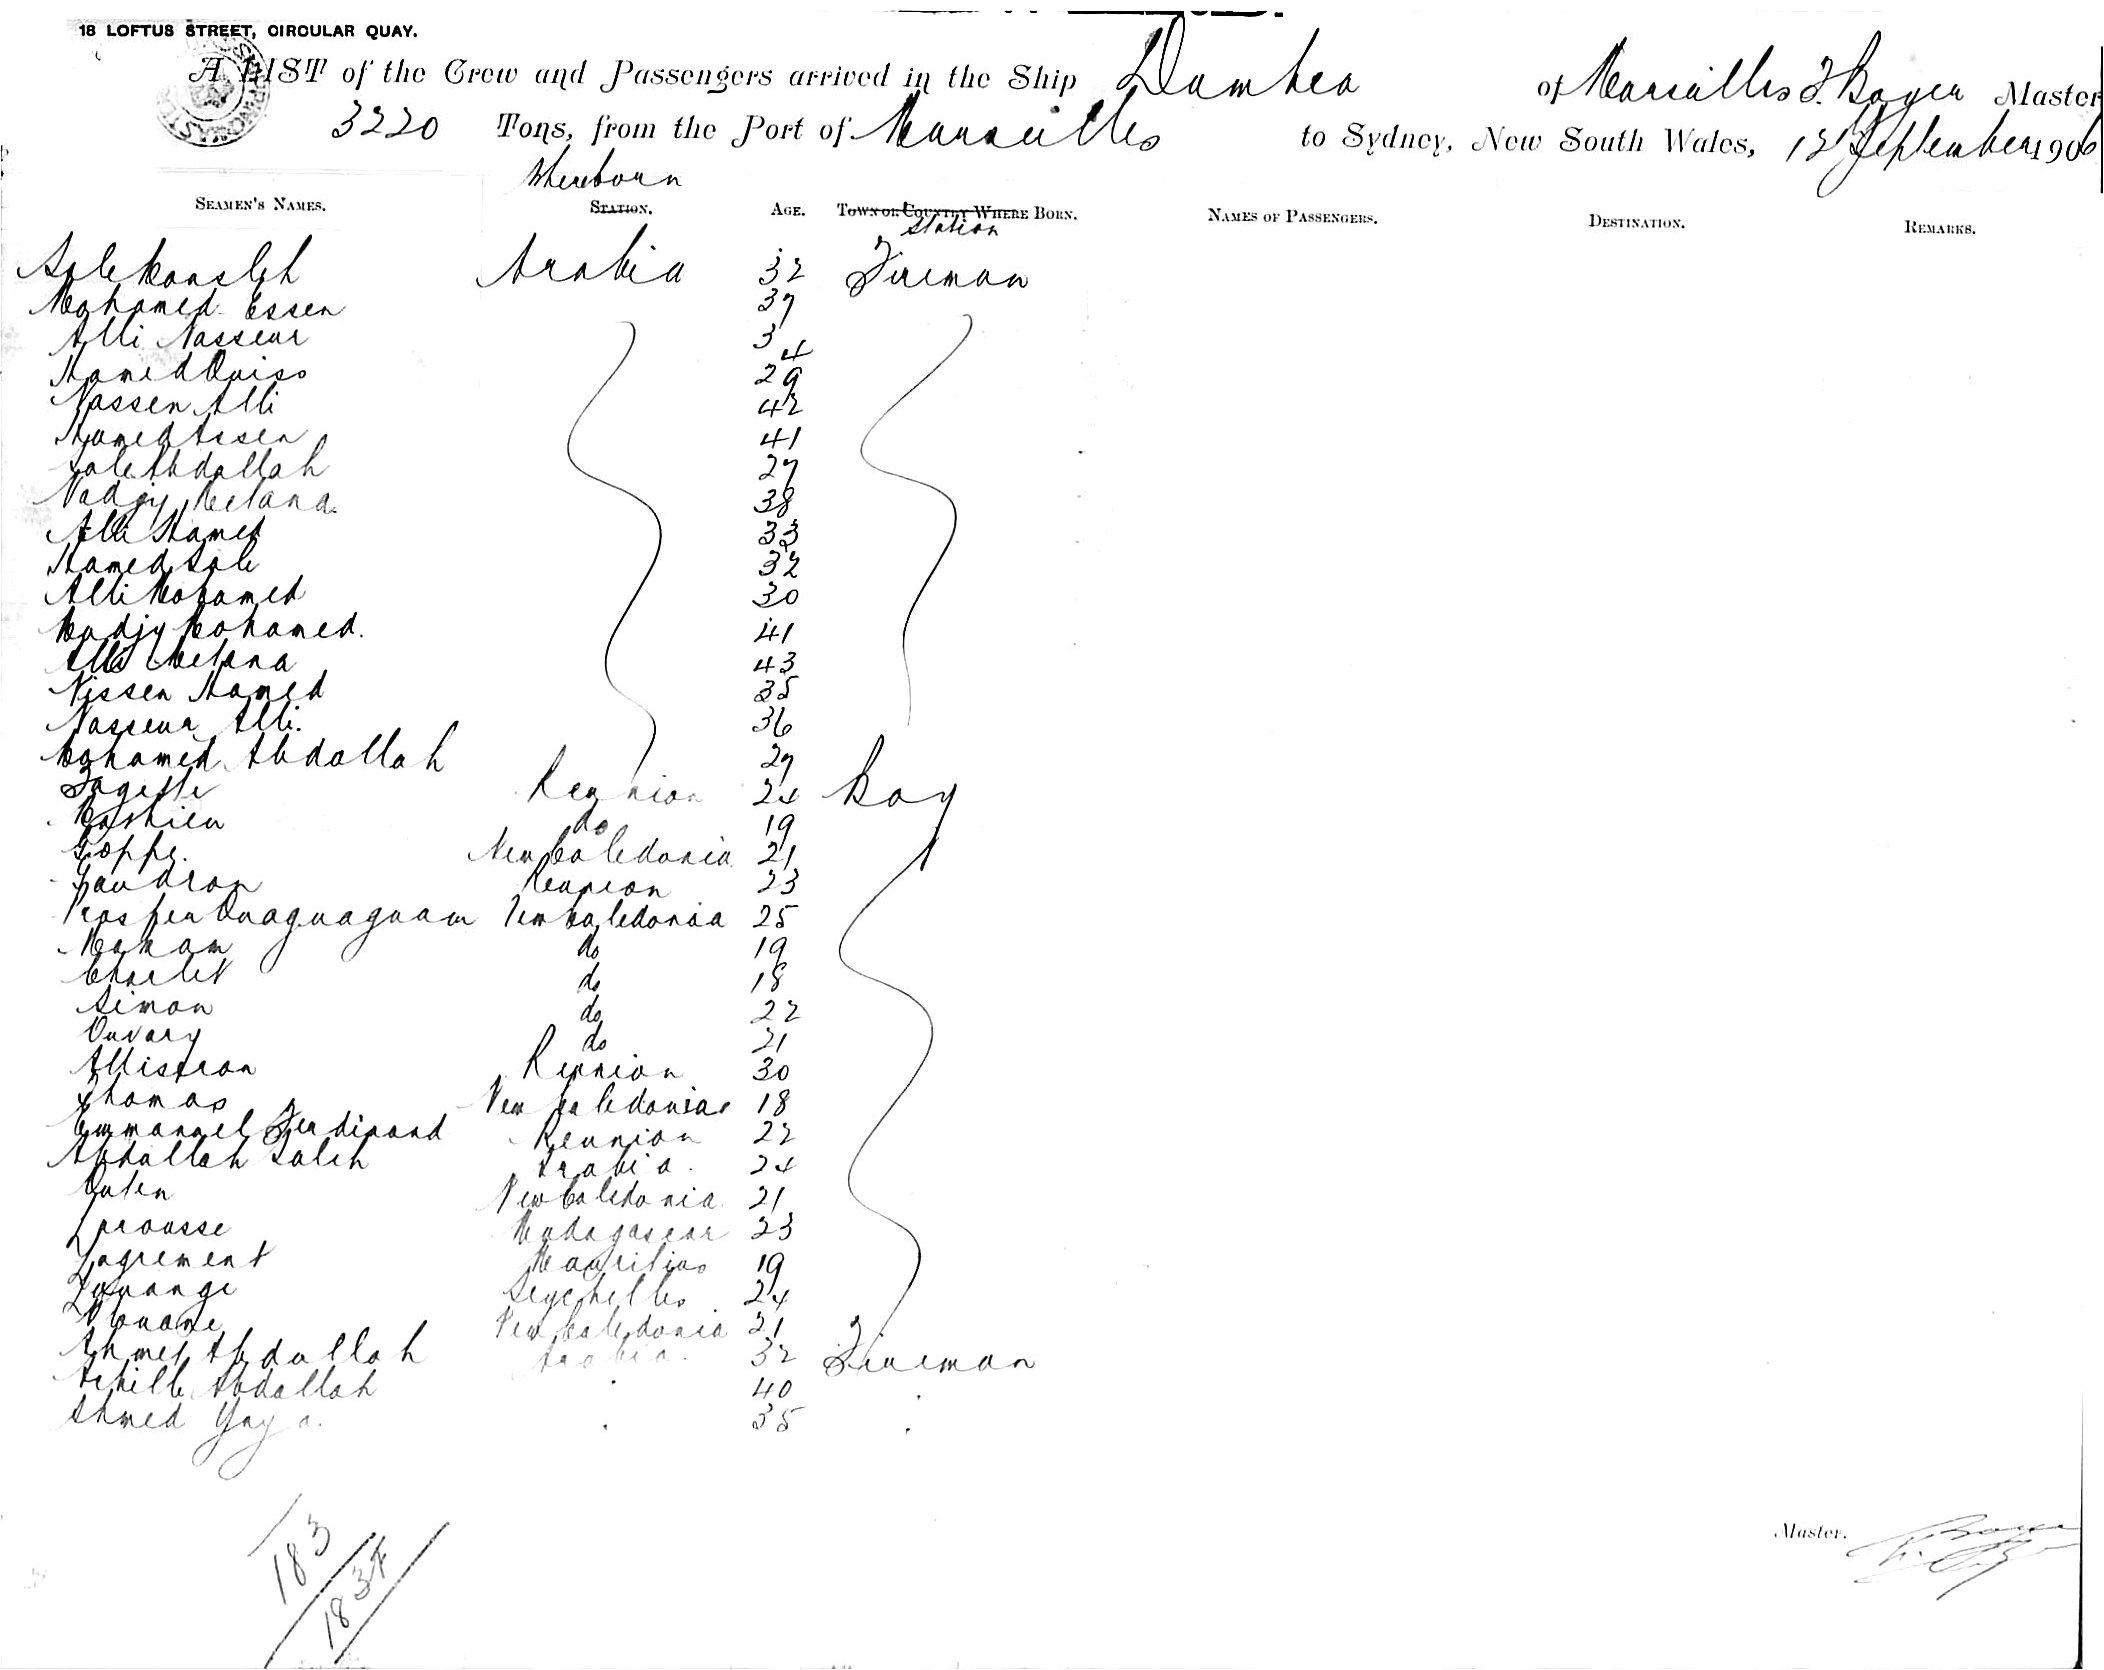 18 LOFTUS STREET, CIRCULAR QUAY.
A LIST of the Crew and Passengers arrived in the Ship Dumbea of Marseilles F. Boyer Master
3220 Tons, from the Port of Marseilles to Sydney, New South Wales, 12 September 1906
Whereborn
SEAMEN'S NAMES. STATION. AGE. TOWN OR COUNTRY WHERE BORN. NAMES OF PASSENGERS. DESTINATION. REMARKS.
Station
Sale Monsleh Arabia 32 Fireman
Mohamed Essen 37
Alli Nasseur 34
Hamed Quiss 29
Nassen Alli 42
Hamed Assen 41
Sale Abdallah 27
Nadjy Melana 38
Alli Hamed 33
Hamed Sale 32
Alli Mohamed 30
Madjy Mohamed. 41
Alli Melana 43
Nissen Hamed 35
Nasseur Alli. 36
Mohamed Abdallah 27
Fagette Reunion 24 Boy
Mathieu do 19
Goppe. New Caledonia 21
Gaudron Reunion 23
Prosper Ouaguaguam New Caledonia 25
Makam do 19
Charlet do 18
Simon do 22
Ouvary do 21
Allistron Reunion 30
Thomas New Caledonia 18
Emmanuel Ferdinand Reunion 22
Abdallah Saleh Arabia. 24
Outen New Caledonia 21
Lrousse Madagascar 23
Lagrement Mauritius 19
Louange Seychelles 24
New Caledonia 21
Ahmet Abdallah Arabia. 32 Fireman
Achille Abdallah 40
Ahmed Yaya. 35
183
Master. Boyer